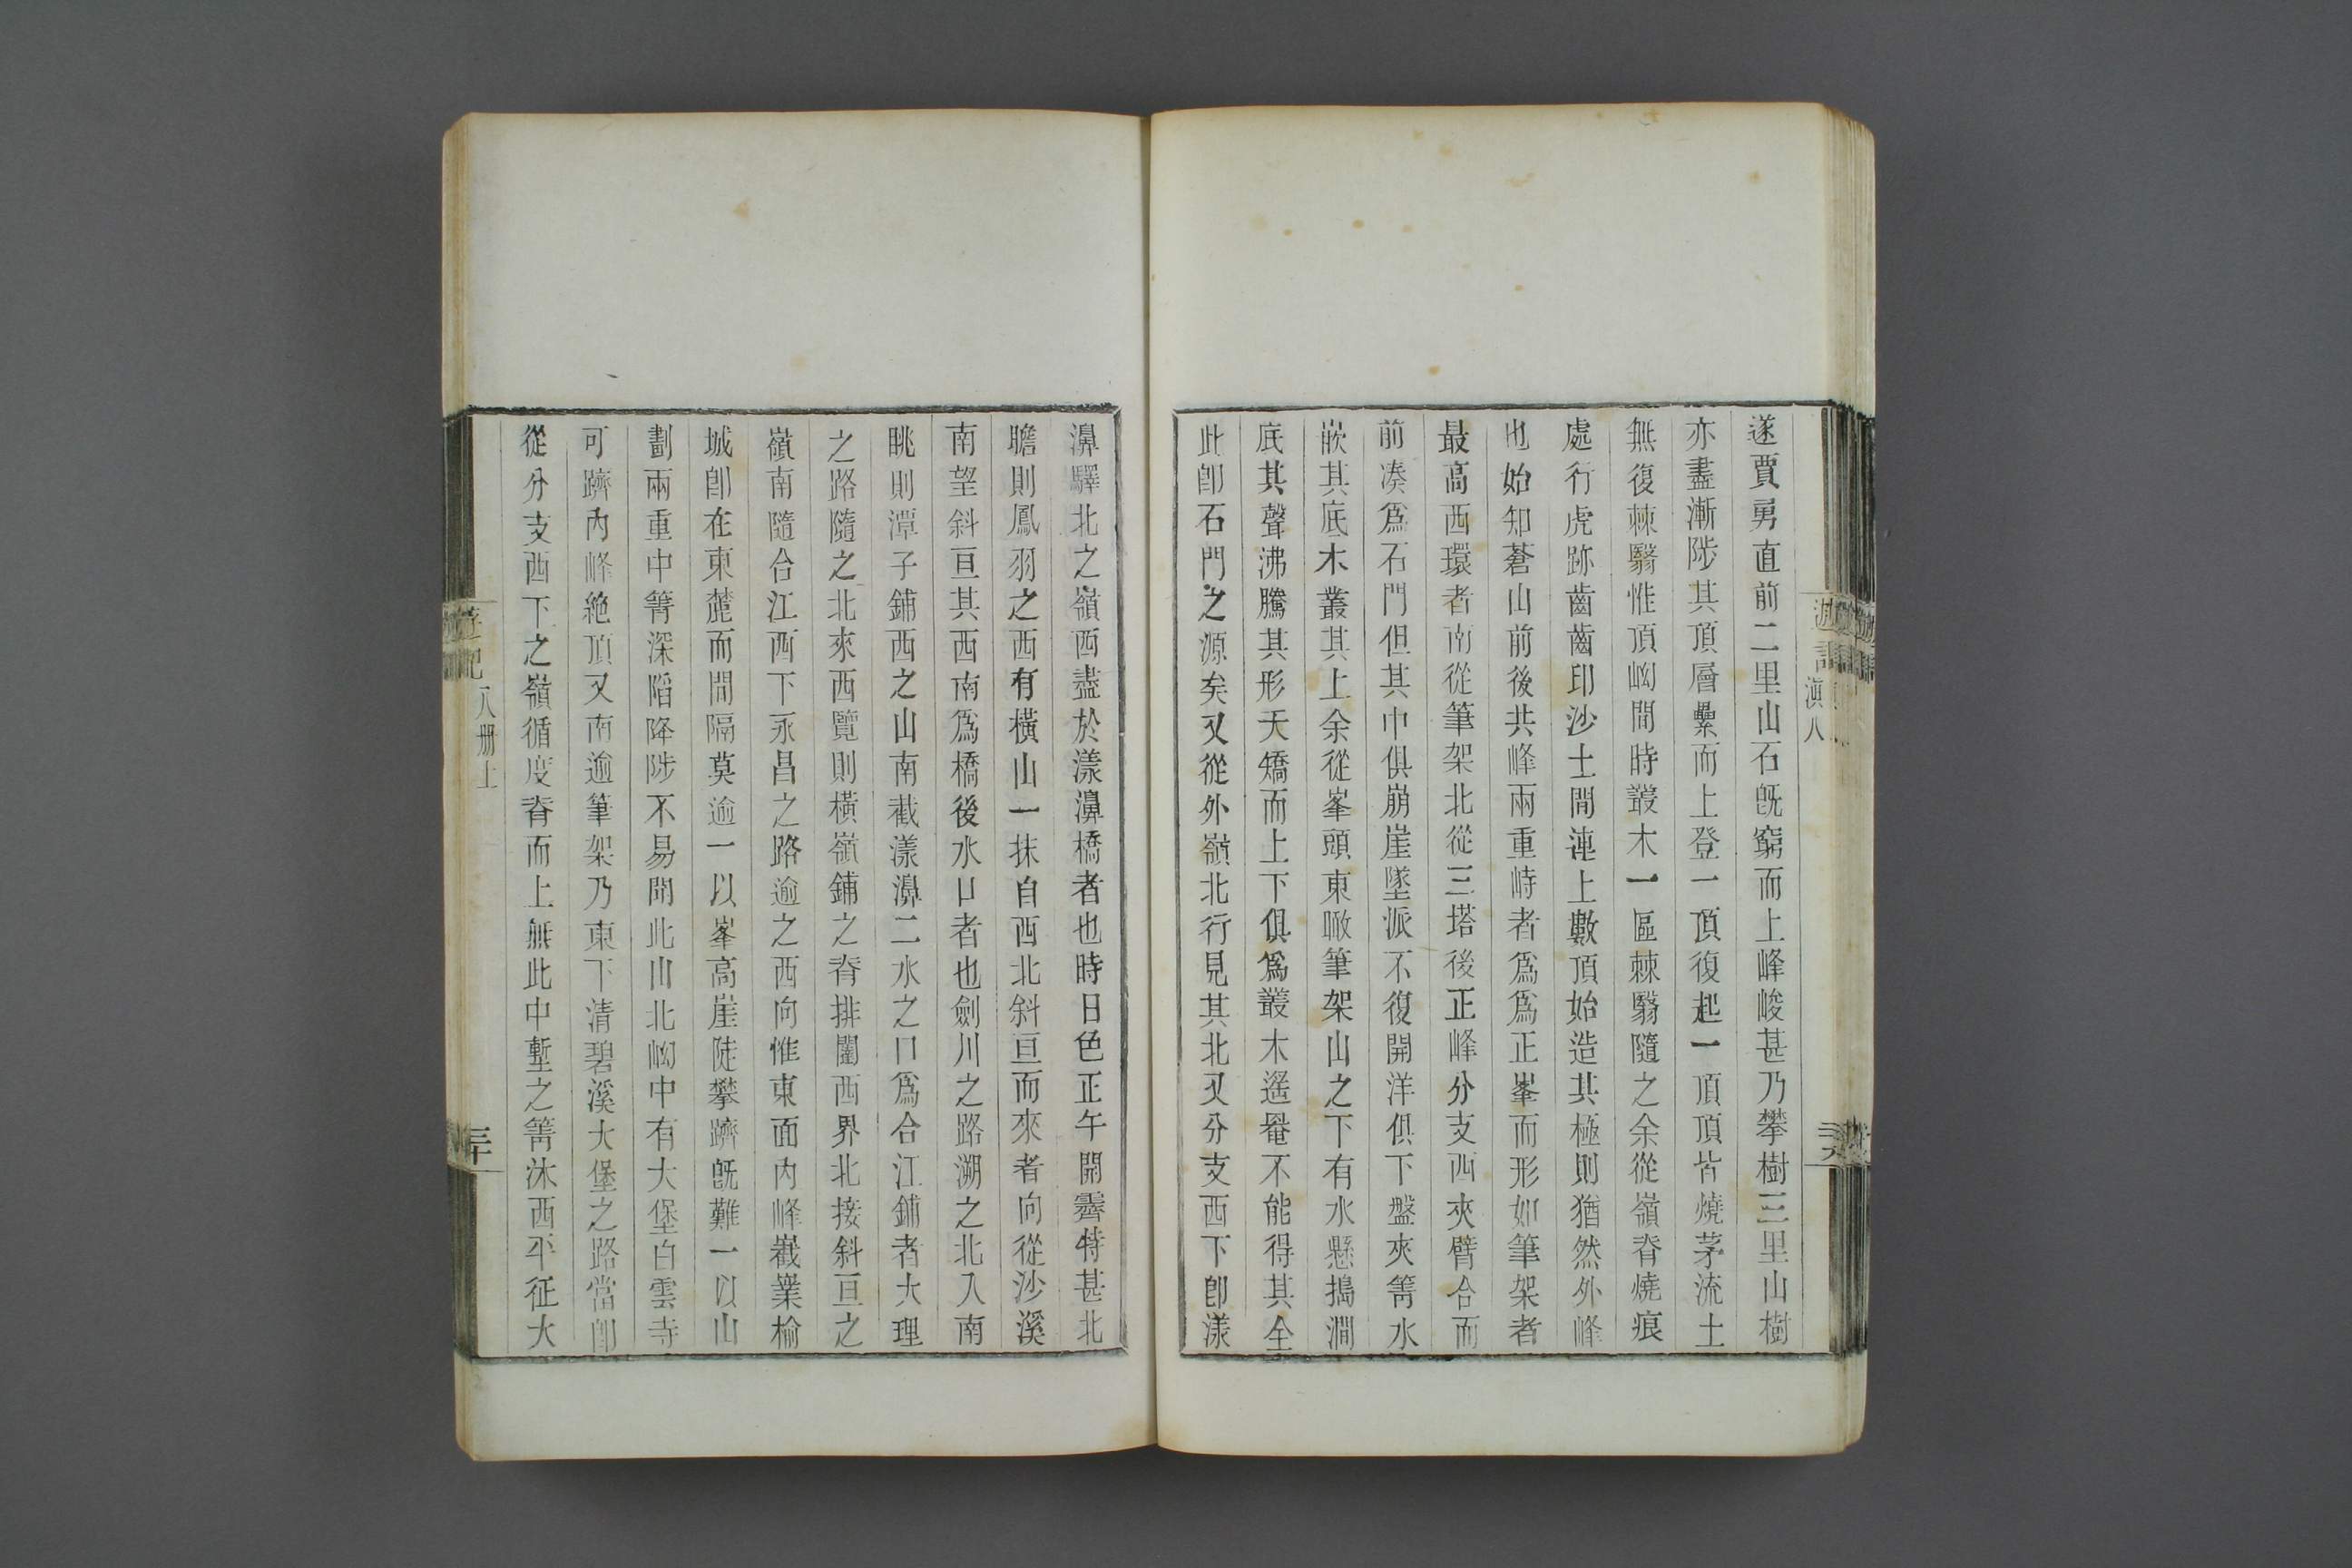 遂賈勇直前二里山石旣窮而上峰峻甚乃攀樹三里山樹
亦盡漸陟其頂層纍而上登一頂復起一頂頂皆燒茅流土
無復棘翳惟頂㘭間時叢木一區棘翳隨之余從嶺脊燒痕
處行虎跡齒齒印沙土間連上數頂始造其極則猶然外峰
也始知蒼山前後共峰兩重峙者爲爲正峯而形如筆架者
最高西環者南從筆架北從三塔後正峰分支西夾臂合而
前凑爲石門但其中俱崩崖墜派不復開洋俱下盤夾箐水
嵌其底木叢其上余從峯頭東瞰筆架山之下有水懸搗澗
底其聲沸騰其形夭矯而上下俱爲叢木遥罨不能得其全
此卽石門之源矣又從外嶺北行見其北又分支西下卽漾
濞驛北之嶺西盡於漾濞橋者也時日色正午開霽特甚北
瞻則鳳羽之西有橫山一抹自西北斜亘而來者向從沙溪
南望斜亘其西南爲橋後水口者也劍川之路溯之北入南
眺則潭子鋪西之山南截漾濞二水之口爲合江鋪者大理
之路隨之北來西覽則橫嶺鋪之脊排闥西界北接斜亘之
嶺南隨合江西下永昌之路逾之西向惟東面內峰嶻嶪榆
城卽在東麓而間隔莫逾一以峯高崖陡攀躋旣難一以山
劃兩重中箐深陷降陟不易聞此山北㘭中有大堡白雲寺
可躋內峰絶頂又南逾筆架乃東下清碧溪大堡之路當卽
從分支西下之嶺循度脊而上無此中塹之箐沐西平征大
遊記
滇八
遊記
八册上
三十